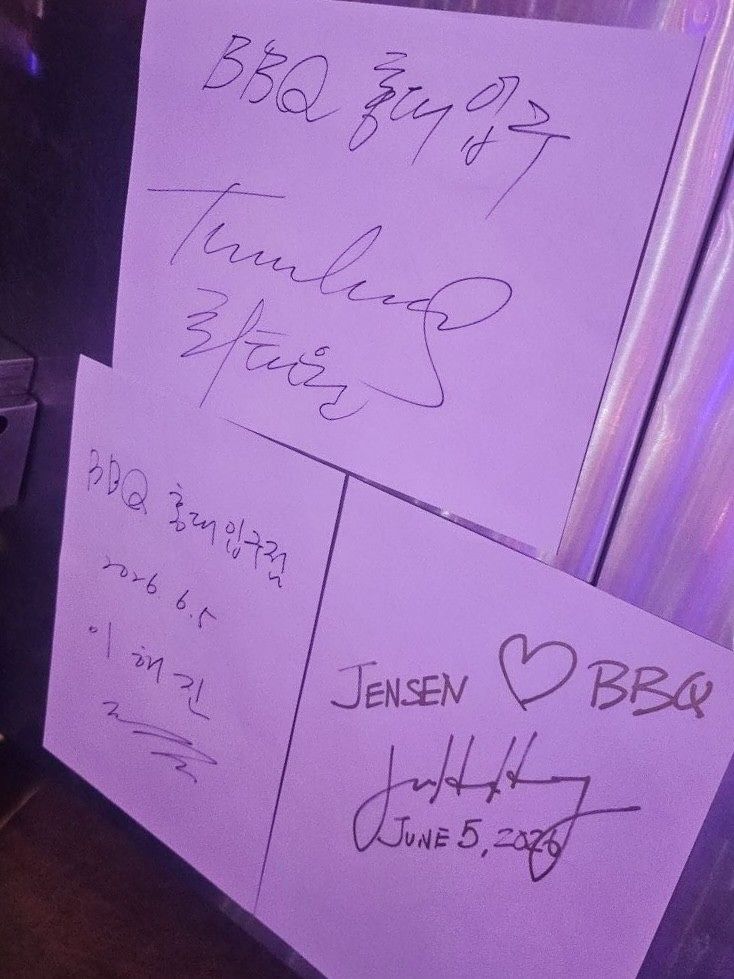 BBQ 홍대입구
BBQ 홍대입구점
2026 6.5
이해진
JENSEN ♡ BBQ
JUNE 5, 2026